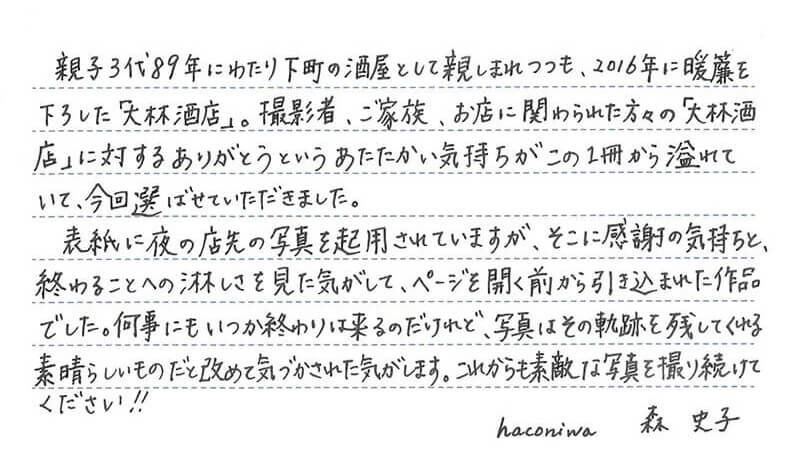 親子3代89年にわたり下町の酒屋として親しまれつつも、2016年に暖簾を
下ろした「大林酒店」。撮影者、ご家族、お店に関わられた方々の「大林酒
店」に対するありがとうというあたたかい気持ちがこの1冊から溢れて
いて、今回選ばせていただきました。
表紙に夜の店先の写真を起用されていますが、そこに感謝の気持ちと、
終わることへの淋しさを見た気がして、ページを開く前から引き込まれた作品
でした。何事にもいつか終わりは来るのだけれど、写真はその軌跡を残してくれる
素晴らしいものだと改めて気づかされた気がします。これからも素敵な写真を撮り続けて
ください!!
haconiwa 森 史子